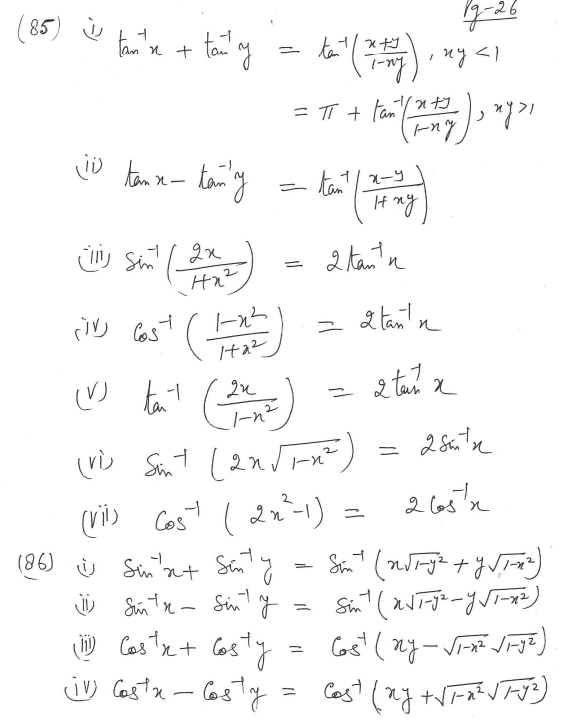 Pg-26
(85) i) tan⁻¹x + tan⁻¹y = tan⁻¹((x+y)/(1-xy)), xy < 1
= π + tan⁻¹((x+y)/(1-xy)), xy > 1
ii) tan x - tan⁻¹y = tan⁻¹((x-y)/(1+xy))
(iii) Sin⁻¹(2x/(1+x²)) = 2tan⁻¹x
(iv) Cos⁻¹((1-x²)/(1+x²)) = 2tan⁻¹x
(v) tan⁻¹(2x/(1-x²)) = 2tan⁻¹x
(vi) Sin⁻¹(2x√(1-x²)) = 2Sin⁻¹x
(vii) Cos⁻¹(2x²-1) = 2Cos⁻¹x
(86) i) Sin⁻¹x + Sin⁻¹y = Sin⁻¹(x√(1-y²) + y√(1-x²))
ii) Sin⁻¹x - Sin⁻¹y = Sin⁻¹(x√(1-y²) - y√(1-x²))
iii) Cos⁻¹x + Cos⁻¹y = Cos⁻¹(xy - √(1-x²) √(1-y²))
iv) Cos⁻¹x - Cos⁻¹y = Cos⁻¹(xy + √(1-x²) √(1-y²))